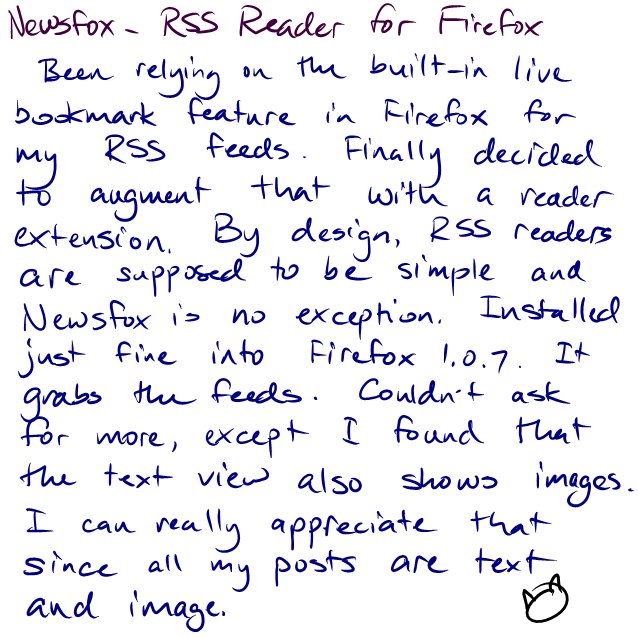 Newsfox - RSS Reader for Firefox
Been relying on the built-in live
bookmark feature in Firefox for
my RSS feeds. Finally decided
to augment that with a reader
extension. By design, RSS readers
are supposed to be simple and
Newsfox is no exception. Installed
just fine into Firefox 1.0.7. It
grabs the feeds. Couldn't ask
for more, except I found that
the text view also shows images.
I can really appreciate that
since all my posts are text
and image.